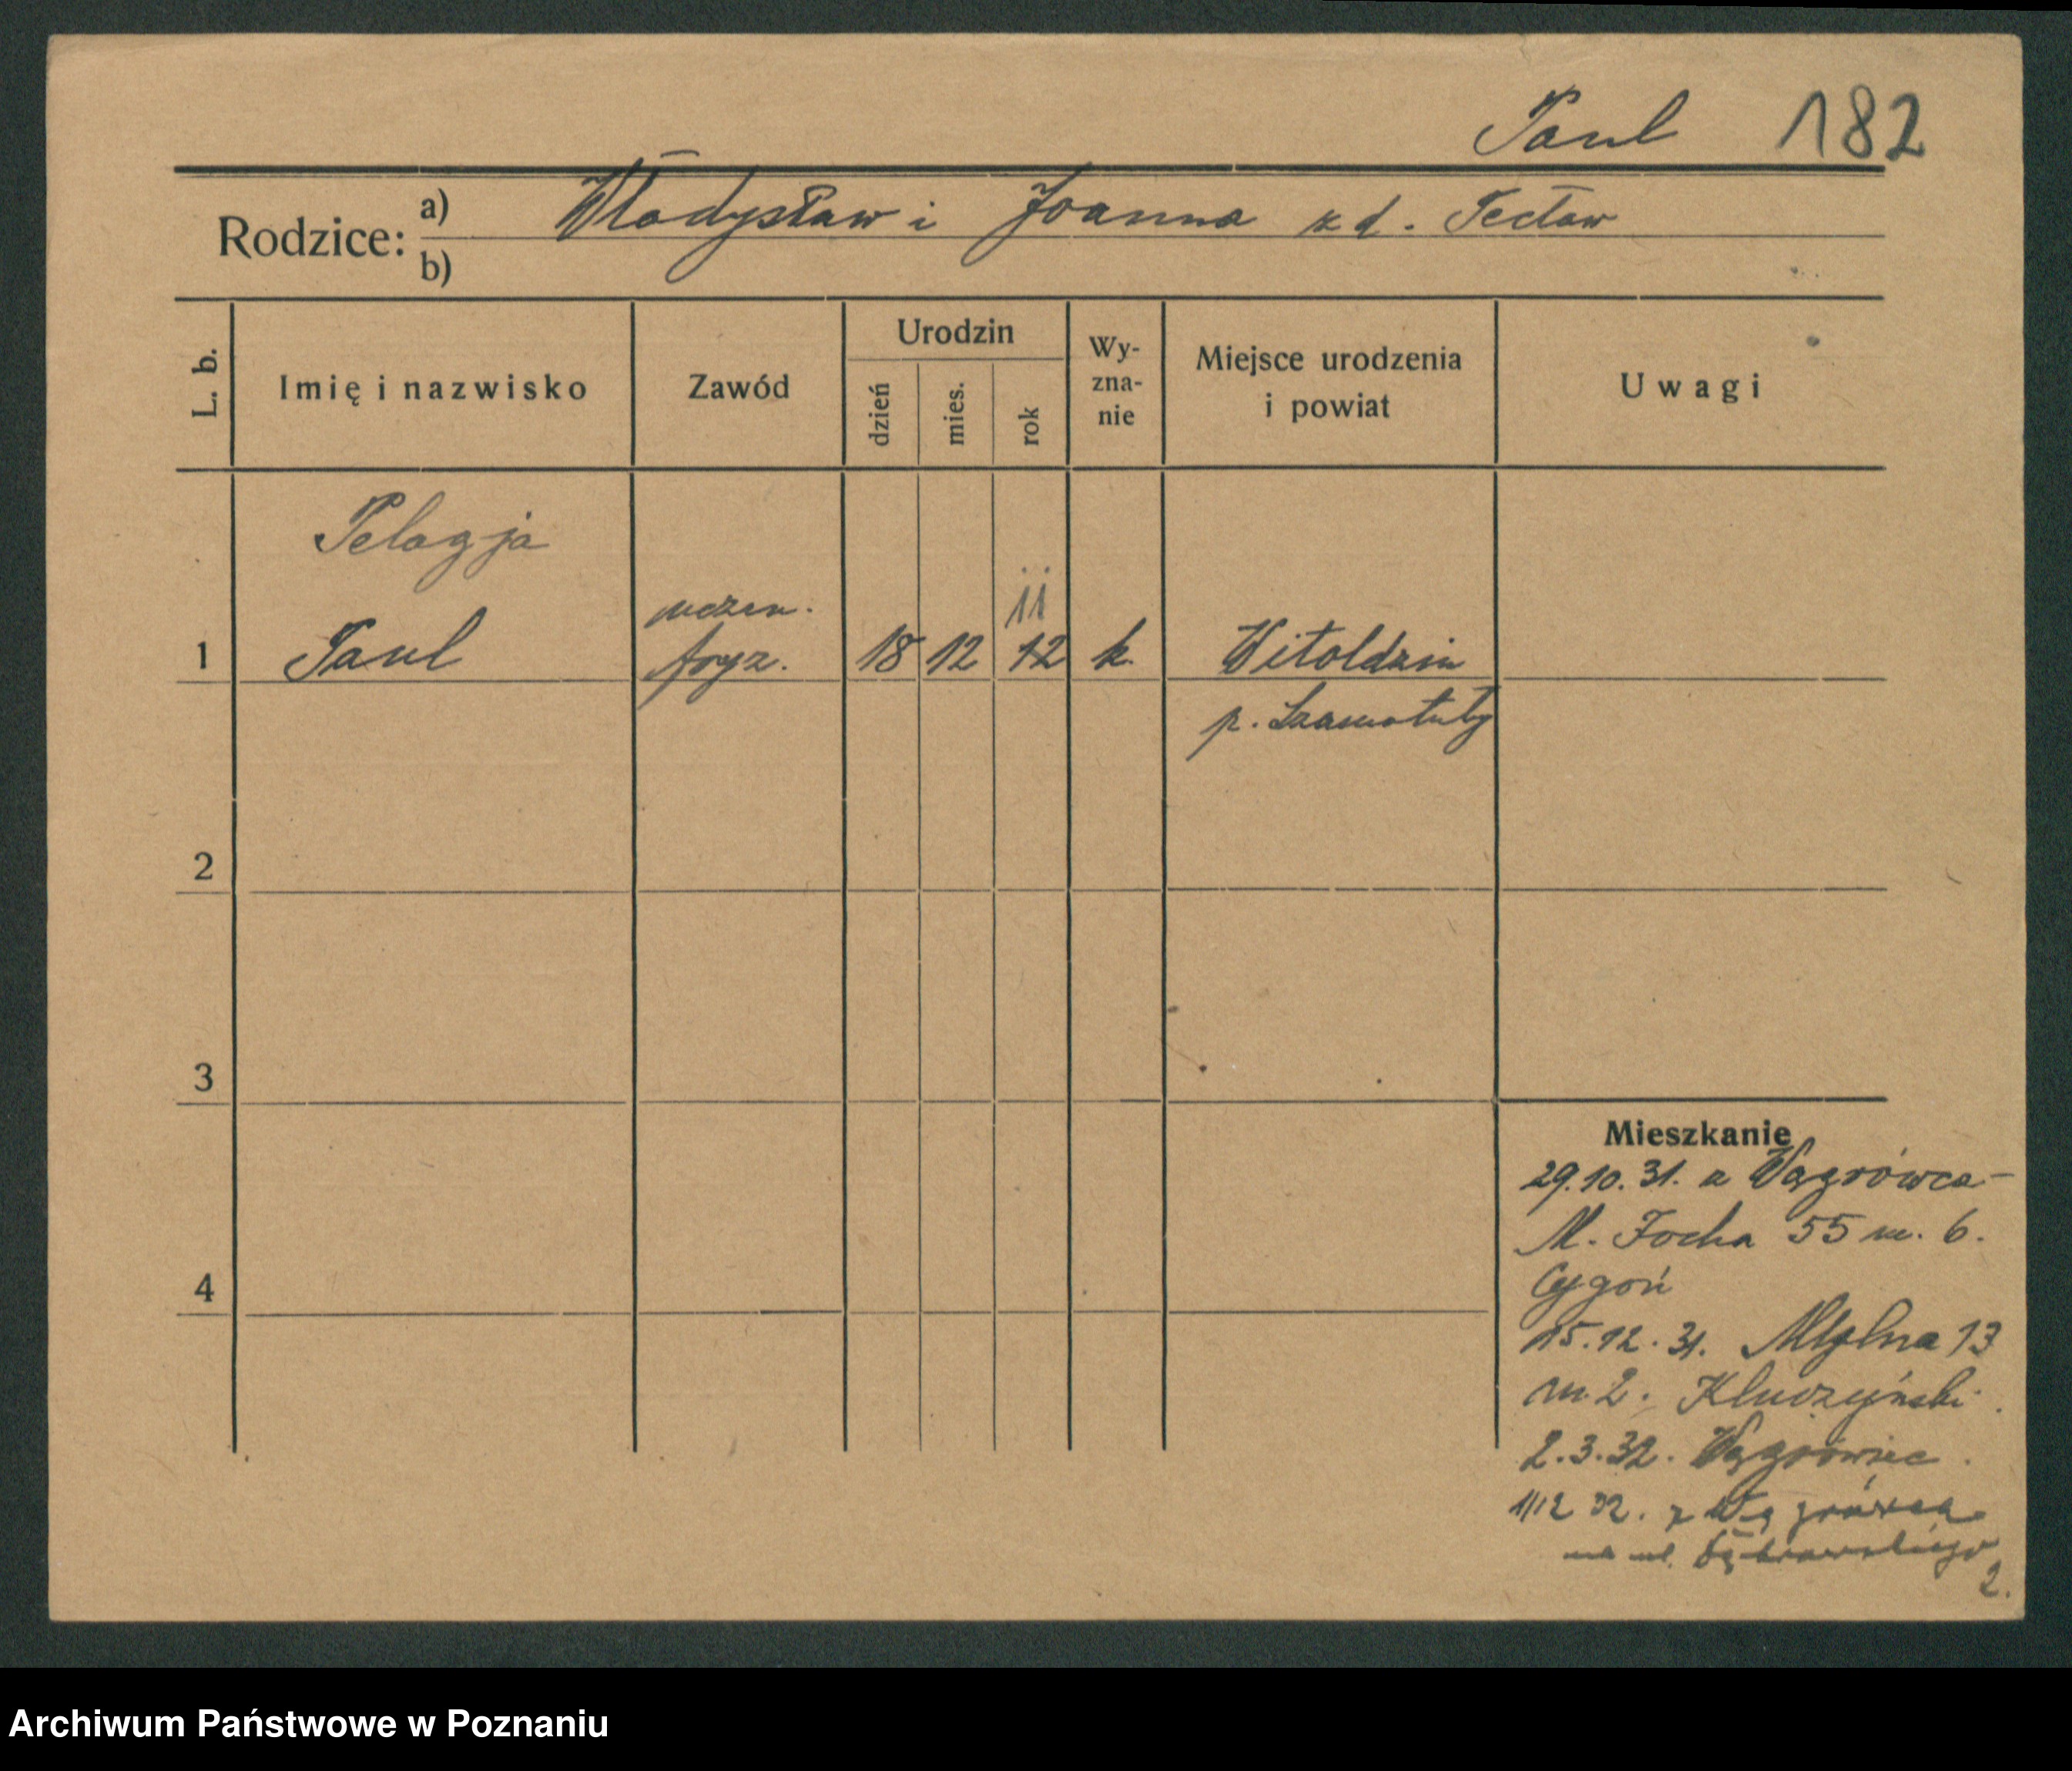 Paul 182
Rodzice: a) Władysław i Joanna z d. Tecław
b)
L. b. Imię i nazwisko Zawód Urodzin dzień mies. rok Wy-zna-nie Miejsce urodzenia i powiat Uwagi
Pelagja
uczen. 11
1 Paul fryz. 18 12 12 k. Witoldzin
p. Szamotuły
2
3
Mieszkanie
29.10.31. z Wągrówca-
M. Focha 55 m. 6.
4 Cygoń
15.12.31. Młylna 13
m. 2. Kluczyński.
2.3.32. Wągrówiec.
1/12 32. z Wągrówca
na ul. Dąbrowskiego
2.
Archiwum Państwowe w Poznaniu